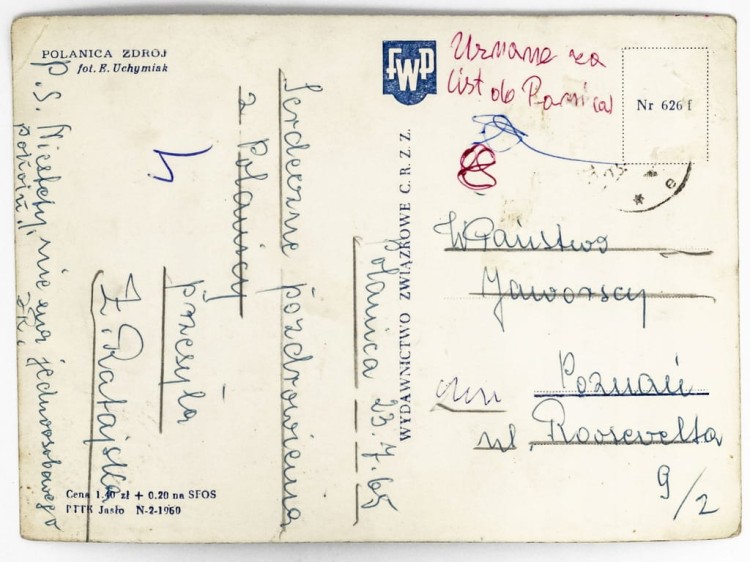 POLANICA ZDRÓJ
fot. E. Uchymiak
FWP
Uznane za
list do
Nr 626 f
Polanica 23.7.65
Serdeczne pozdrowienia
z Polanicy
przesyła
Z. Ratajska
P.S. Niestety nie ma jednoosobowego
pokoju!!
ZR.
WYDAWNICTWO ZWIĄZKOWE C. R. Z. Z.
W Państwo
Jaworscy
Poznań
ul. Roosevelta
9/2
Cena 1.40 zł + 0.20 na SFOS
PTTK Jasło N-2-1960